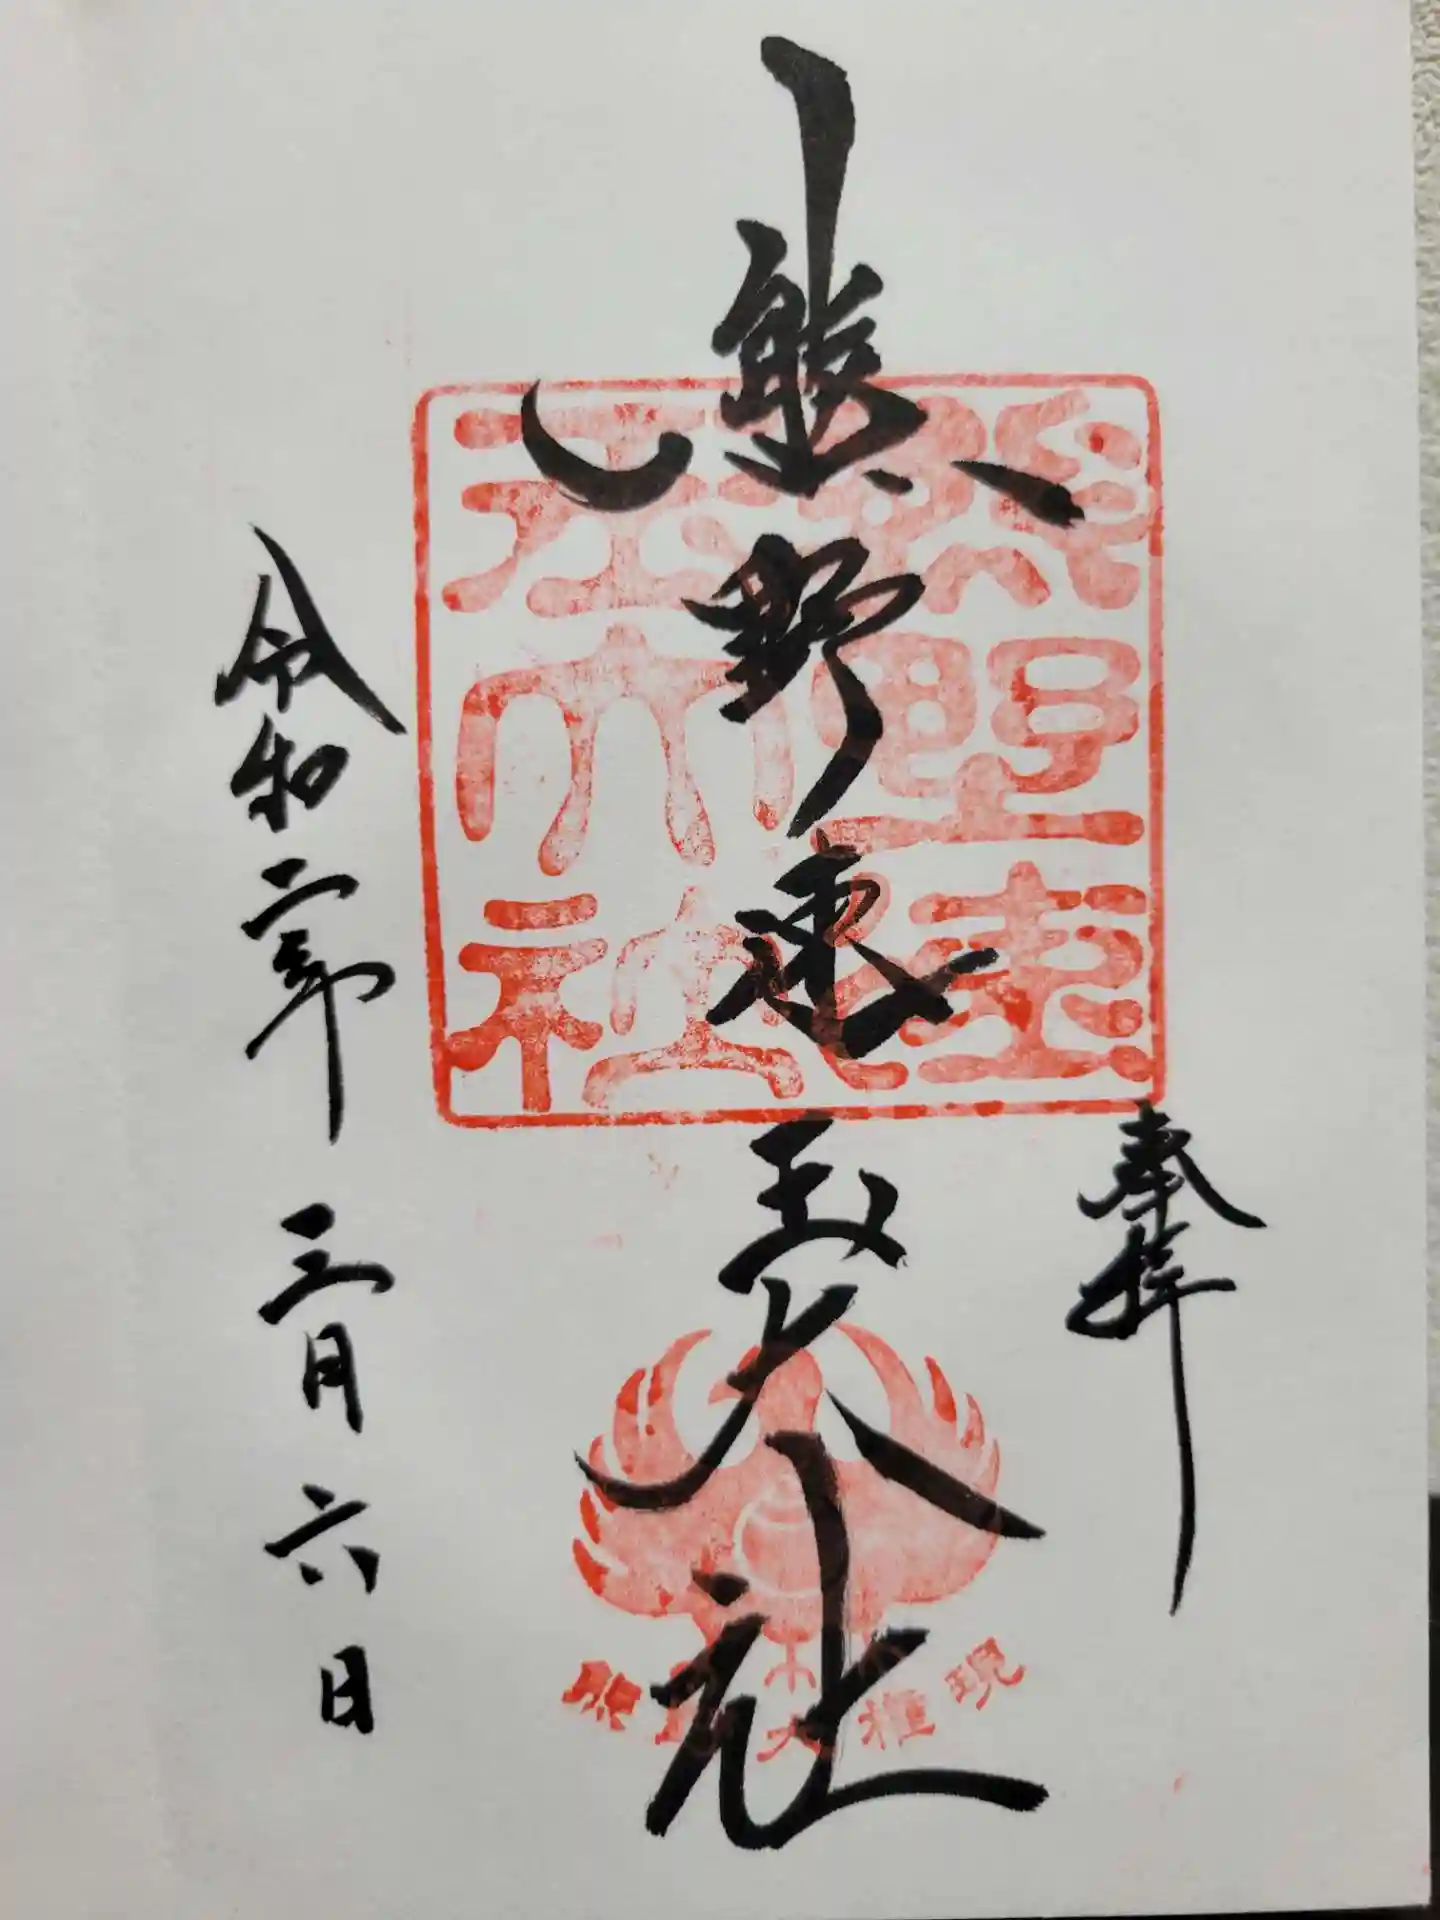 奉拝
熊野速玉大社
令和二年三月六日
熊野速玉大社
熊野大権現